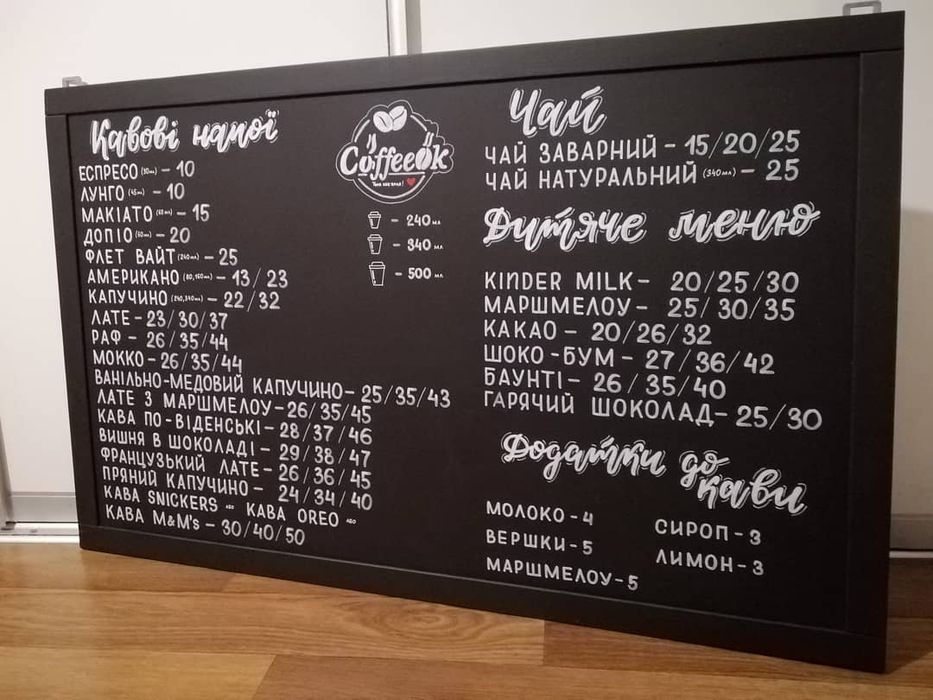 Кавові напої
ЕСПРЕСО (30мл) - 10
ЛУНГО (45мл) - 10
МАКІАТО (60мл) - 15
ДОПІО (60мл) - 20
ФЛЕТ ВАЙТ (240мл) - 25
АМЕРИКАНО (80,160мл) - 13/23
КАПУЧИНО (240,340мл) - 22/32
ЛАТЕ - 23/30/37
РАФ - 26/35/44
МОККО - 26/35/44
ВАНІЛЬНО-МЕДОВИЙ КАПУЧИНО - 25/35/43
ЛАТЕ З МАРШМЕЛОУ - 26/35/45
КАВА ПО-ВІДЕНСЬКІ - 28/37/46
ВИШНЯ В ШОКОЛАДІ - 29/38/47
ФРАНЦУЗЬКИЙ ЛАТЕ - 26/36/45
ПРЯНИЙ КАПУЧИНО - 24/34/40
КАВА SNICKERS АБО КАВА OREO АБО
КАВА M&M's - 30/40/50
CoffeeOk
- 240 мл
- 340 мл
- 500 мл
Чай
ЧАЙ ЗАВАРНИЙ - 15/20/25
ЧАЙ НАТУРАЛЬНИЙ (340мл) - 25
Дитяче меню
KINDER MILK - 20/25/30
МАРШМЕЛОУ - 25/30/35
КАКАО - 20/26/32
ШОКО-БУМ - 27/36/42
БАУНТІ - 26/35/40
ГАРЯЧИЙ ШОКОЛАД - 25/30
Додатки до кави
МОЛОКО - 4
ВЕРШКИ - 5
МАРШМЕЛОУ - 5
СИРОП - 3
ЛИМОН - 3